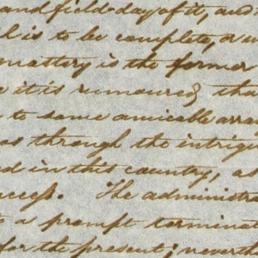 and field day of it, and
l is to be complete, a
mattery is the former
e it is rumoured, tha
to some amicable arra
as through the intrigu
d in this country, as
ccess. The administra
a prompt terminat
for the present; neverth